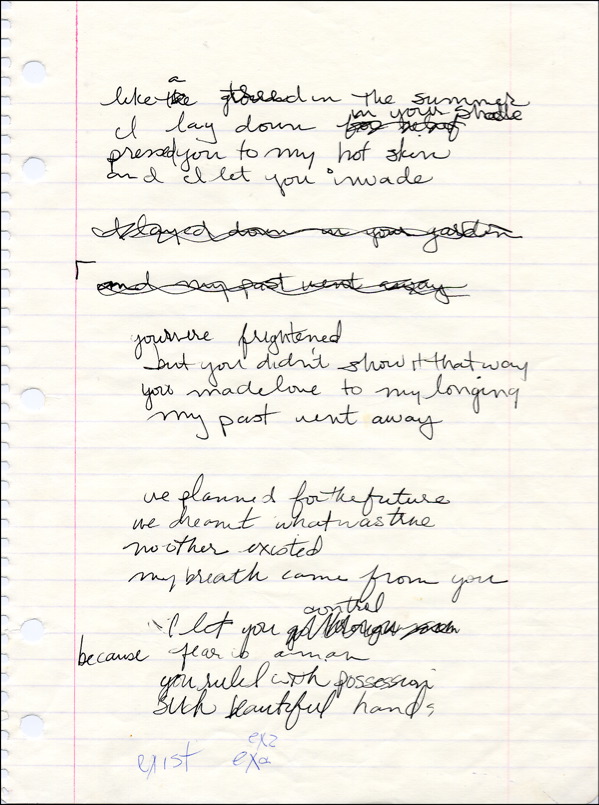 like a flood in the summer
I lay down in your shade
pressed you to my hot skin
and I let you invade
I layed down in your garden
and my past went away
you were frightened
but you didn't show it that way
you made love to my longing
my past went away
we planned for the future
we dreamt what was true
no other existed
my breath came from you
I let you control
because fear is a man
you ruled with possession
such beautiful hands
exist exa
exz